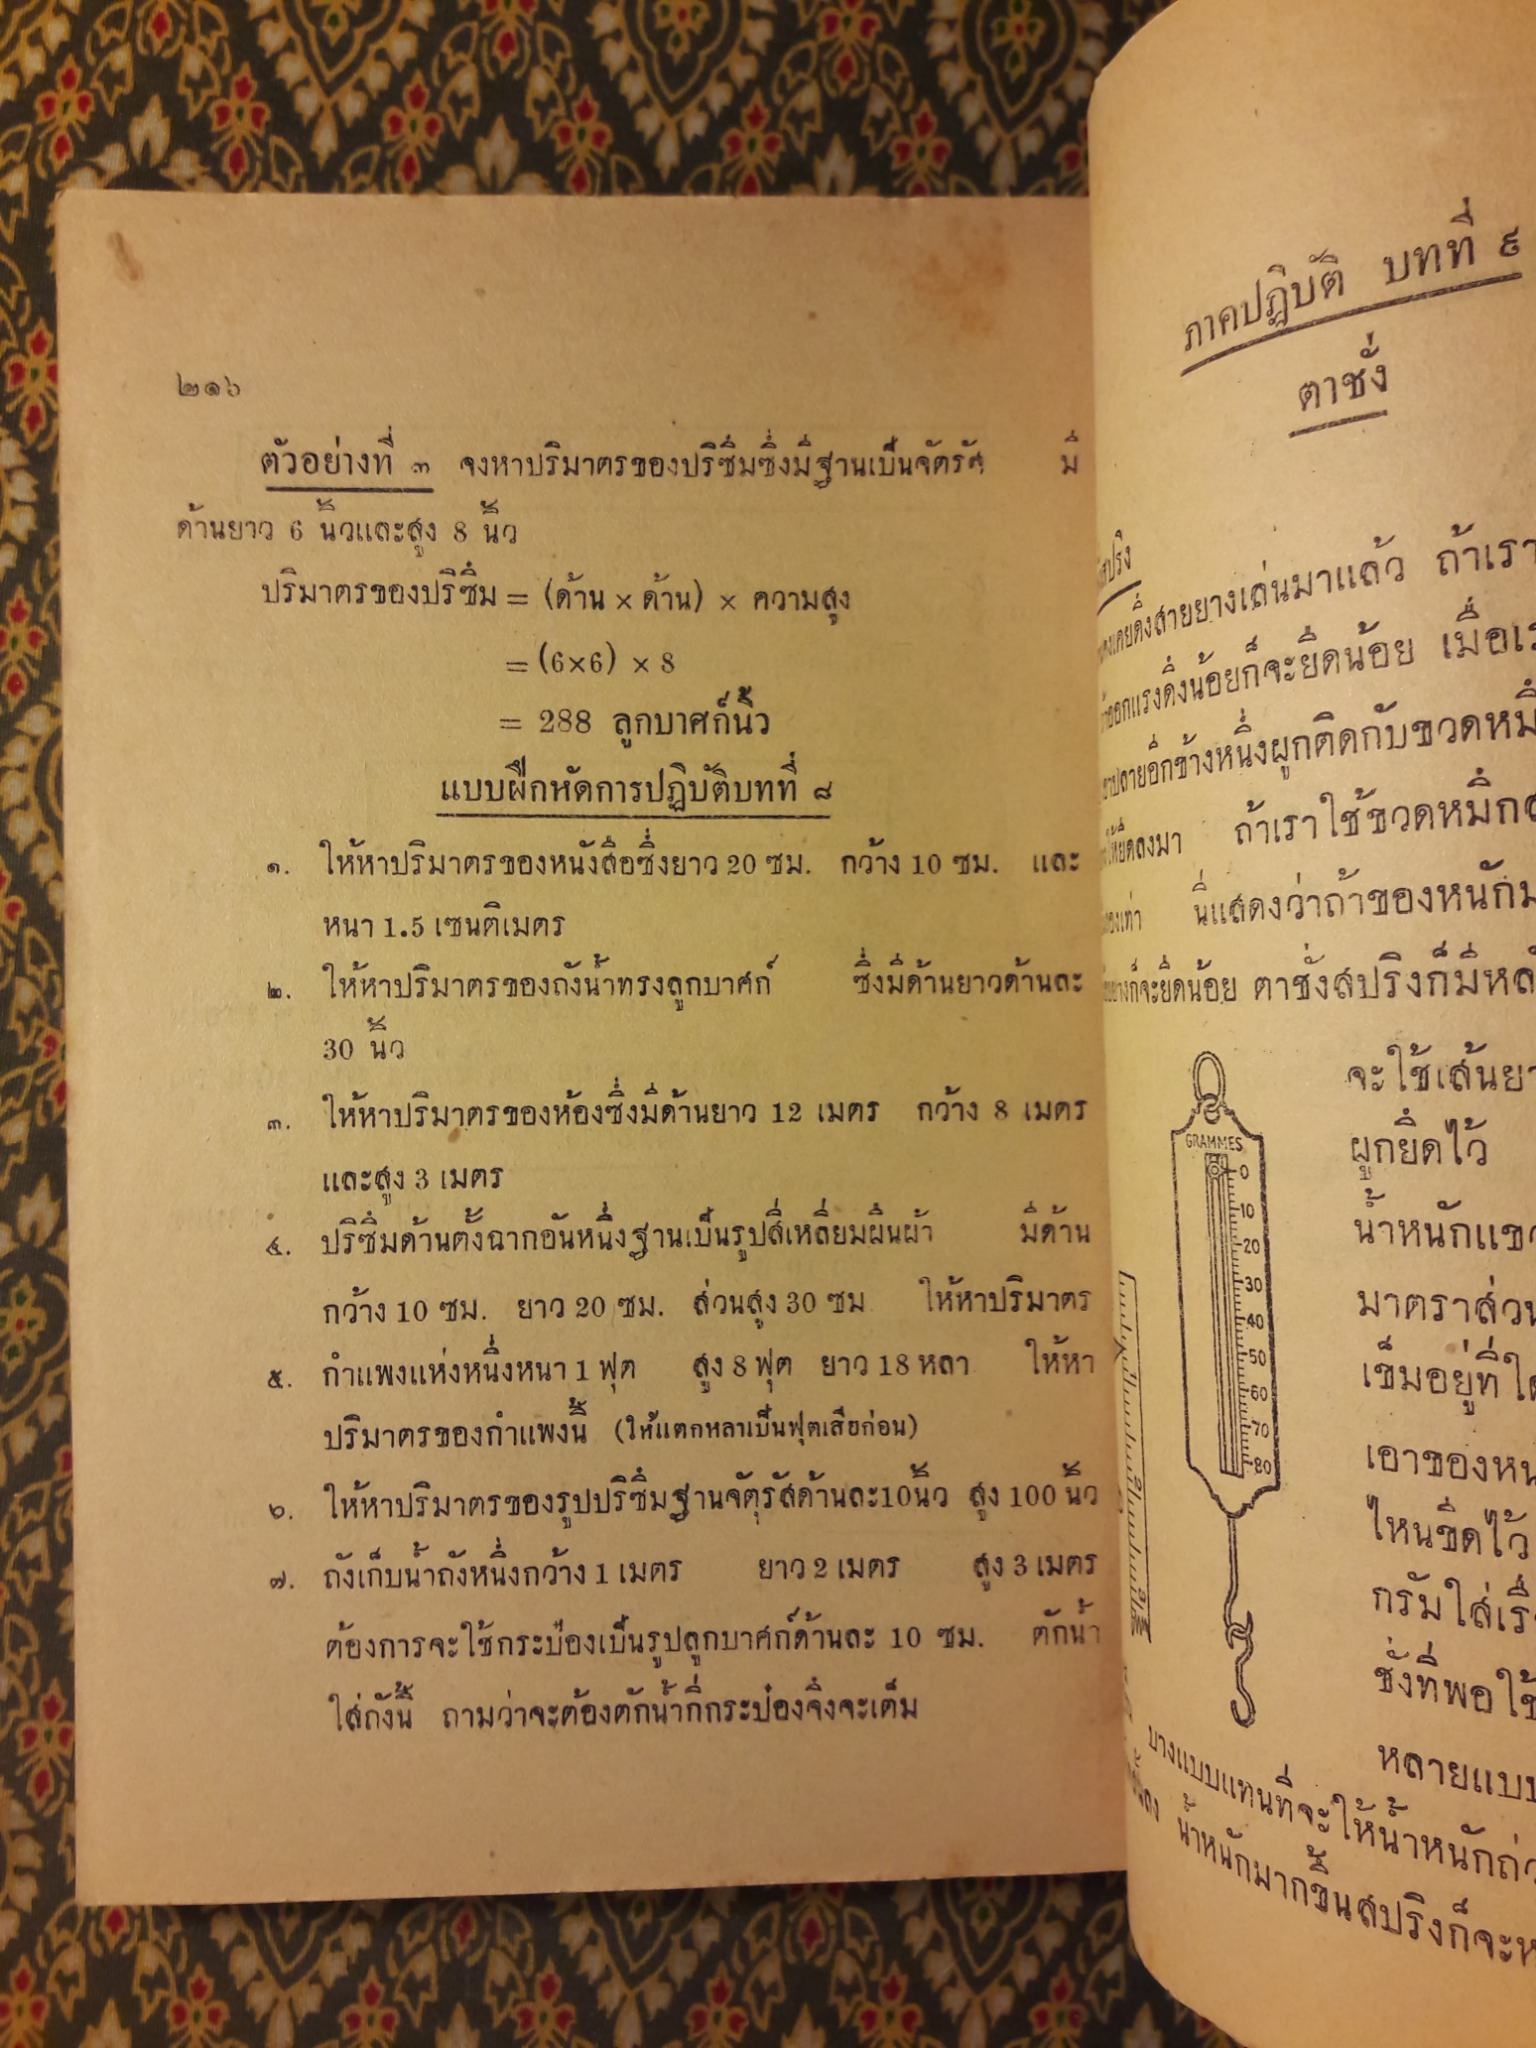 ๒๑๖
ตัวอย่างที่ ๓ จงหาปริมาตรของปริซึ่มซึ่งมีฐานเป็นจัตุรัส มี
ด้านยาว 6 นิ้วและสูง 8 นิ้ว
ปริมาตรของปริซึ่ม = (ด้าน × ด้าน) × ความสูง
= (6×6) × 8
= 288 ลูกบาศก์นิ้ว
แบบฝึกหัดการปฏิบัติบทที่ ๘
๑. ให้หาปริมาตรของหนังสือซึ่งยาว 20 ซม. กว้าง 10 ซม. และ
หนา 1.5 เซนติเมตร
๒. ให้หาปริมาตรของถังน้ำทรงลูกบาศก์ ซึ่งมีด้านยาวด้านละ
30 นิ้ว
๓. ให้หาปริมาตรของห้องซึ่งมีด้านยาว 12 เมตร กว้าง 8 เมตร
และสูง 3 เมตร
๔. ปริซึ่มด้านตั้งฉากอันหนึ่งฐานเป็นรูปสี่เหลี่ยมผืนผ้า มีด้าน
กว้าง 10 ซม. ยาว 20 ซม. ส่วนสูง 30 ซม ให้หาปริมาตร
๕. กำแพงแห่งหนึ่งหนา 1 ฟุต สูง 8 ฟุต ยาว 18 หลา ให้หา
ปริมาตรของกำแพงนี้ (ให้แตกหลาเป็นฟุตเสียก่อน)
๖. ให้หาปริมาตรของรูปปริซึ่มฐานจัตุรัสด้านละ10นิ้ว สูง 100 นิ้ว
๗. ถังเก็บน้ำถังหนึ่งกว้าง 1 เมตร ยาว 2 เมตร สูง 3 เมตร
ต้องการจะใช้กระป๋องเป็นรูปลูกบาศก์ด้านละ 10 ซม. ตักน้ำ
ใส่ถังนี้ ถามว่าจะต้องตักน้ำกี่กระป๋องจึงจะเต็ม
ภาคปฏิบัติ บทที่ ๙
ตาชั่ง
สปริง
เคยดึงสายยางเล่นมาแล้ว ถ้าเรา
ออกแรงดึงน้อยก็จะยืดน้อย เมื่อเร
ปลายอีกข้างหนึ่งผูกติดกับขวดหมึ
ให้ยืดลงมา ถ้าเราใช้ขวดหมึก
เท่า นี่แสดงว่าถ้าของหนักม
ยางก็จะยืดน้อย ตาชั่งสปริงก็มีหลั
จะใช้เส้นยา
ผูกยึดไว้
น้ำหนักแขว
มาตราส่วน
เข็มอยู่ที่ใด
เอาของหน
ไหนขีดไว้
กรัมใส่เรื่
ชั่งที่พอใช้
หลายแบบ
GRAMMES
0
10
20
30
40
50
60
70
80
บางแบบแทนที่จะให้น้ำหนักถ่ว
น้ำหนักมากขึ้นสปริงก็จะห